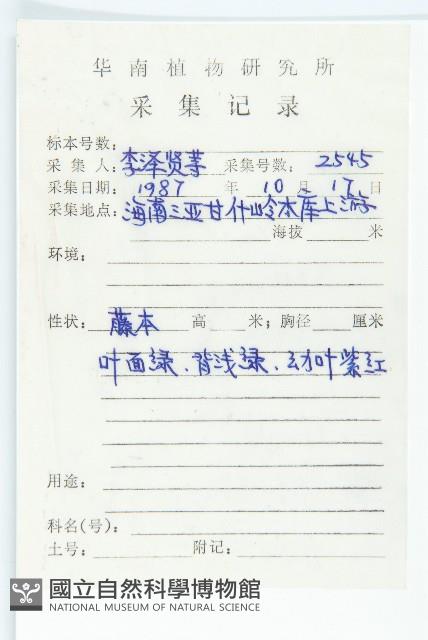 华南植物研究所
采集记录
标本号数:
采集人: 李泽贤等 采集号数: 2545
采集日期: 1987 年 10 月 17 日
采集地点: 海南三亚甘什岭水库上游
海拔 米
环境:
性状: 藤本 高 米; 胸径 厘米
叶面绿、背浅绿、幼叶紫红
用途:
科名(号):
土号: 附记:
國立自然科學博物館
NATIONAL MUSEUM OF NATURAL SCIENCE